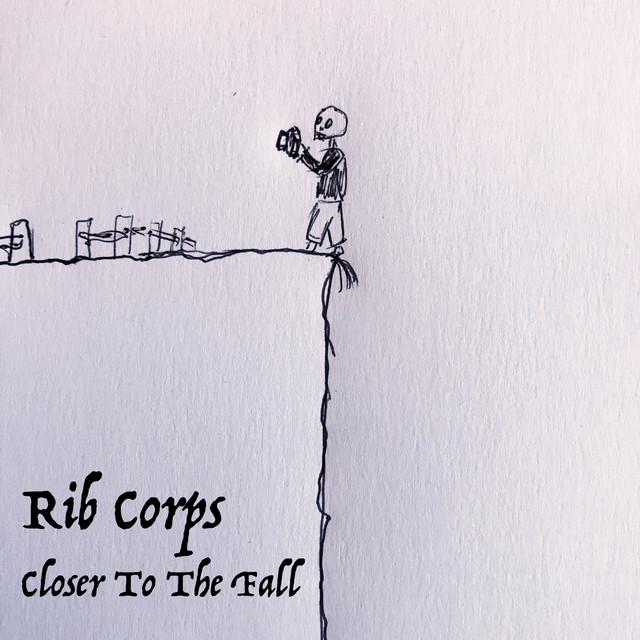 Rib Corps
Closer To The Fall